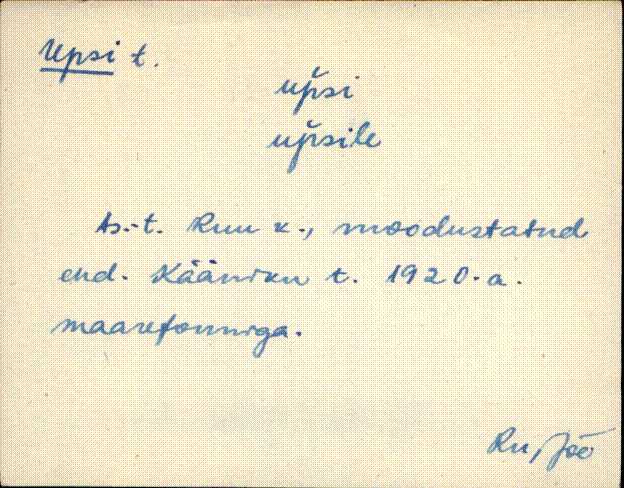 Upsi t.
up̆si
up̆sile
As.-t. Ruu k., moodustatud
end. Kääniku t. 1920.a.
maareformiga.
Ru, Jõe